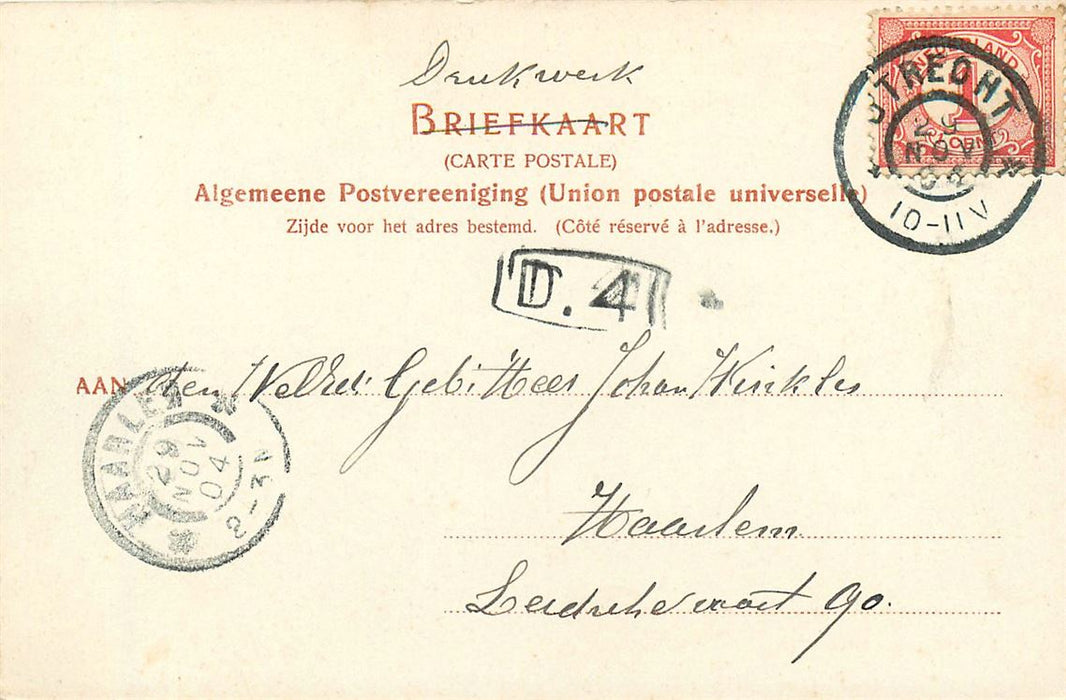 Drukwerk
BRIEFKAART
(CARTE POSTALE)
Algemeene Postvereeniging (Union postale universelle)
Zijde voor het adres bestemd. (Côté réservé à l'adresse.)
NEDERLAND
1
UTRECHT
29
NOV
04
10-11V
D. 4
AAN den WelEd: Geb: Heer Johan Winkler
HAARLEM
29
NOV
04
2-3N
Haarlem
Leidschevaart 90.